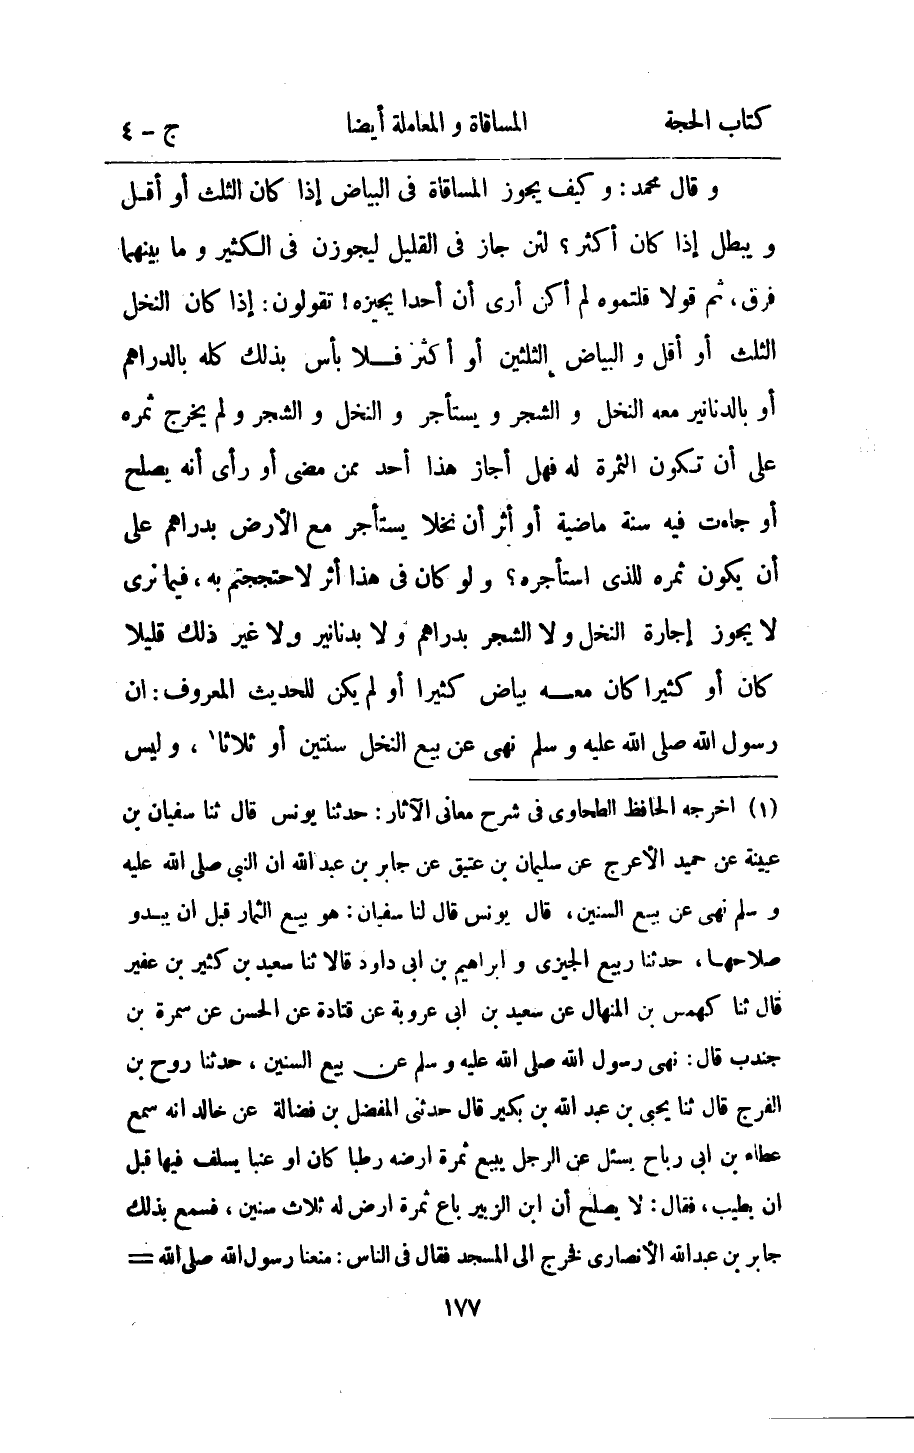 كتاب الحجة المساقاة و المعاملة أيضا ج - ٤
و قال محمد: و كيف يجوز المساقاة فى البياض إذا كان الثلث أو أقل
و يبطل إذا كان أكثر؟ لئن جاز فى القليل ليجوزن فى الكثير و ما بينهما
فرق، ثم قولا قلتموه لم أكن أرى أن أحدا يجيزه! تقولون: إذا كان النخل
الثلث أو أقل و البياض الثلثين أو أكثر فلا بأس بذلك كله بالدراهم
أو بالدنانير معه النخل و الشجر و يستأجر و النخل و الشجر و لم يخرج ثمره
على أن تكون الثمرة له فهل أجاز هذا أحد ممن مضى أو رأى أنه يصلح
أو جاءت فيه سنة ماضية أو أثر أن نخلا يستأجر مع الأرض بدراهم على
أن يكون ثمره للذى استأجره؟ و لو كان فى هذا أثر لاحتججتم به، فيما نرى
لا يجوز إجارة النخل و لا الشجر بدراهم و لا بدنانير و لا غير ذلك قليلا
كان أو كثيرا كان معه بياض كثيرا أو لم يكن للحديث المعروف: ان
رسول الله صلى الله عليه و سلم نهى عن بيع النخل سنتين أو ثلاثا¹، و ليس
(١) اخرجه الحافظ الطحاوى فى شرح معانى الآثار: حدثنا يونس قال ثنا سفيان بن
عيينة عن حميد الأعرج عن سليمان بن عتيق عن جابر بن عبد الله ان النبى صلى الله عليه
و سلم نهى عن بيع السنين، قال يونس قال لنا سفيان: هو بيع الثمار قبل ان يبدو
صلاحها، حدثنا ربيع الجيزى و ابراهيم بن ابى داود قالا ثنا سعيد بن كثير بن عفير
قال ثنا كهمس بن المنهال عن سعيد بن ابى عروبة عن قتادة عن الحسن عن سمرة بن
جندب قال: نهى رسول الله صلى الله عليه و سلم عن بيع السنين، حدثنا روح بن
الفرج قال ثنا يحيى بن عبد الله بن بكير قال حدثنى المفضل بن فضالة عن خالد انه سمع
عطاء بن ابى رباح يسئل عن الرجل يبيع ثمرة ارضه رطبا كان او عنبا يسلف فيها قبل
ان يطيب، فقال: لا يصلح أن ابن الزبير باع ثمرة ارض له ثلاث سنين، فسمع بذلك
جابر بن عبدالله الأنصارى فخرج الى المسجد فقال فى الناس: منعنا رسول الله صلى الله =
١٧٧